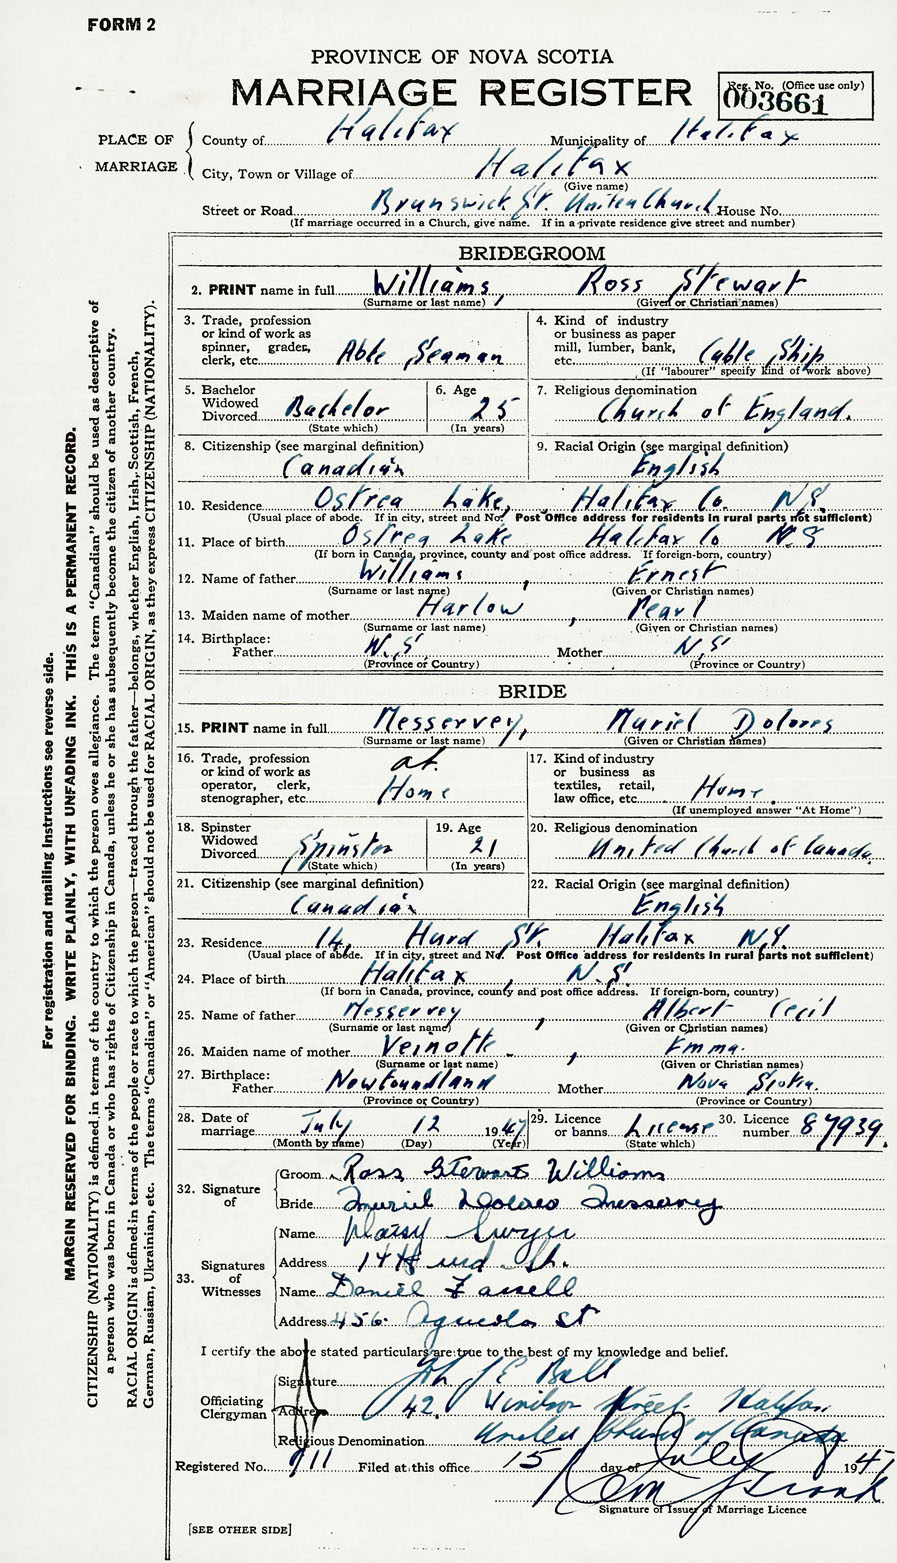 FORM 2
PROVINCE OF NOVA SCOTIA
MARRIAGE REGISTER
Reg. No. (Office use only)
003661
PLACE OF MARRIAGE
County of Halifax Municipality of Halifax
City, Town or Village of Halifax
(Give name)
Street or Road Brunswick St. United Church House No.
(If marriage occurred in a Church, give name. If in a private residence give street and number)
BRIDEGROOM
2. PRINT name in full Williams, Ross Stewart
(Surname or last name) (Given or Christian names)
3. Trade, profession or kind of work as spinner, grader, clerk, etc. Able Seaman
4. Kind of industry or business as paper mill, lumber, bank, etc. Cable Ship
(If "labourer" specify kind of work above)
5. Bachelor Widowed Divorced Bachelor
(State which)
6. Age 25
(In years)
7. Religious denomination
Church of England.
8. Citizenship (see marginal definition)
Canadian
9. Racial Origin (see marginal definition)
English
10. Residence Ostrea Lake, Halifax Co. N.S.
(Usual place of abode. If in city, street and No. Post Office address for residents in rural parts not sufficient)
11. Place of birth Ostrea Lake Halifax Co N.S
(If born in Canada, province, county and post office address. If foreign-born, country)
12. Name of father Williams, Ernest
(Surname or last name) (Given or Christian names)
13. Maiden name of mother Harlow, Pearl
(Surname or last name) (Given or Christian names)
14. Birthplace:
Father N.S. Mother N.S.
(Province or Country) (Province or Country)
BRIDE
15. PRINT name in full Messervey, Muriel Dolores
(Surname or last name) (Given or Christian names)
16. Trade, profession or kind of work as operator, clerk, stenographer, etc. at Home
17. Kind of industry or business as textiles, retail, law office, etc. Home
(If unemployed answer "At Home")
18. Spinster Widowed Divorced Spinster
(State which)
19. Age 21
(In years)
20. Religious denomination
United Church of Canada.
21. Citizenship (see marginal definition)
Canadian
22. Racial Origin (see marginal definition)
English
23. Residence 14, Hurd St. Halifax N.S.
(Usual place of abode. If in city, street and No. Post Office address for residents in rural parts not sufficient)
24. Place of birth Halifax, N.S.
(If born in Canada, province, county and post office address. If foreign-born, country)
25. Name of father Messervey, Albert Cecil
(Surname or last name) (Given or Christian names)
26. Maiden name of mother Veinotte, Emma.
(Surname or last name) (Given or Christian names)
27. Birthplace:
Father Newfoundland Mother Nova Scotia.
(Province or Country) (Province or Country)
28. Date of marriage July 12 1947
(Month by name) (Day) (Year)
29. Licence or banns License
(State which)
30. Licence number 87939.
32. Signature of
Groom Ross Stewart Williams
Bride Muriel Dolores Messervey
33. Signatures of Witnesses
Name Daisy
Address 14 Hurd St.
Name Daniel Fassell
Address 456 Agricola St
I certify the above stated particulars are true to the best of my knowledge and belief.
Officiating Clergyman
Signature J E Bell
Address 42. Windsor Street Halifax
Religious Denomination United Church of Canada
Registered No. 911 Filed at this office 15 day of July 1947
Signature of Issuer of Marriage Licence
[SEE OTHER SIDE]
For registration and mailing instructions see reverse side.
MARGIN RESERVED FOR BINDING. WRITE PLAINLY, WITH UNFADING INK. THIS IS A PERMANENT RECORD.
CITIZENSHIP (NATIONALITY) is defined in terms of the country to which the person owes allegiance. The term "Canadian" should be used as descriptive of
a person who was born in Canada or who has rights of Citizenship in Canada, unless he or she has subsequently become the citizen of another country.
RACIAL ORIGIN is defined in terms of the people or race to which the person—traced through the father—belongs, whether English, Irish, Scottish, French,
German, Russian, Ukrainian, etc. The terms "Canadian" or "American" should not be used for RACIAL ORIGIN, as they express CITIZENSHIP (NATIONALITY).